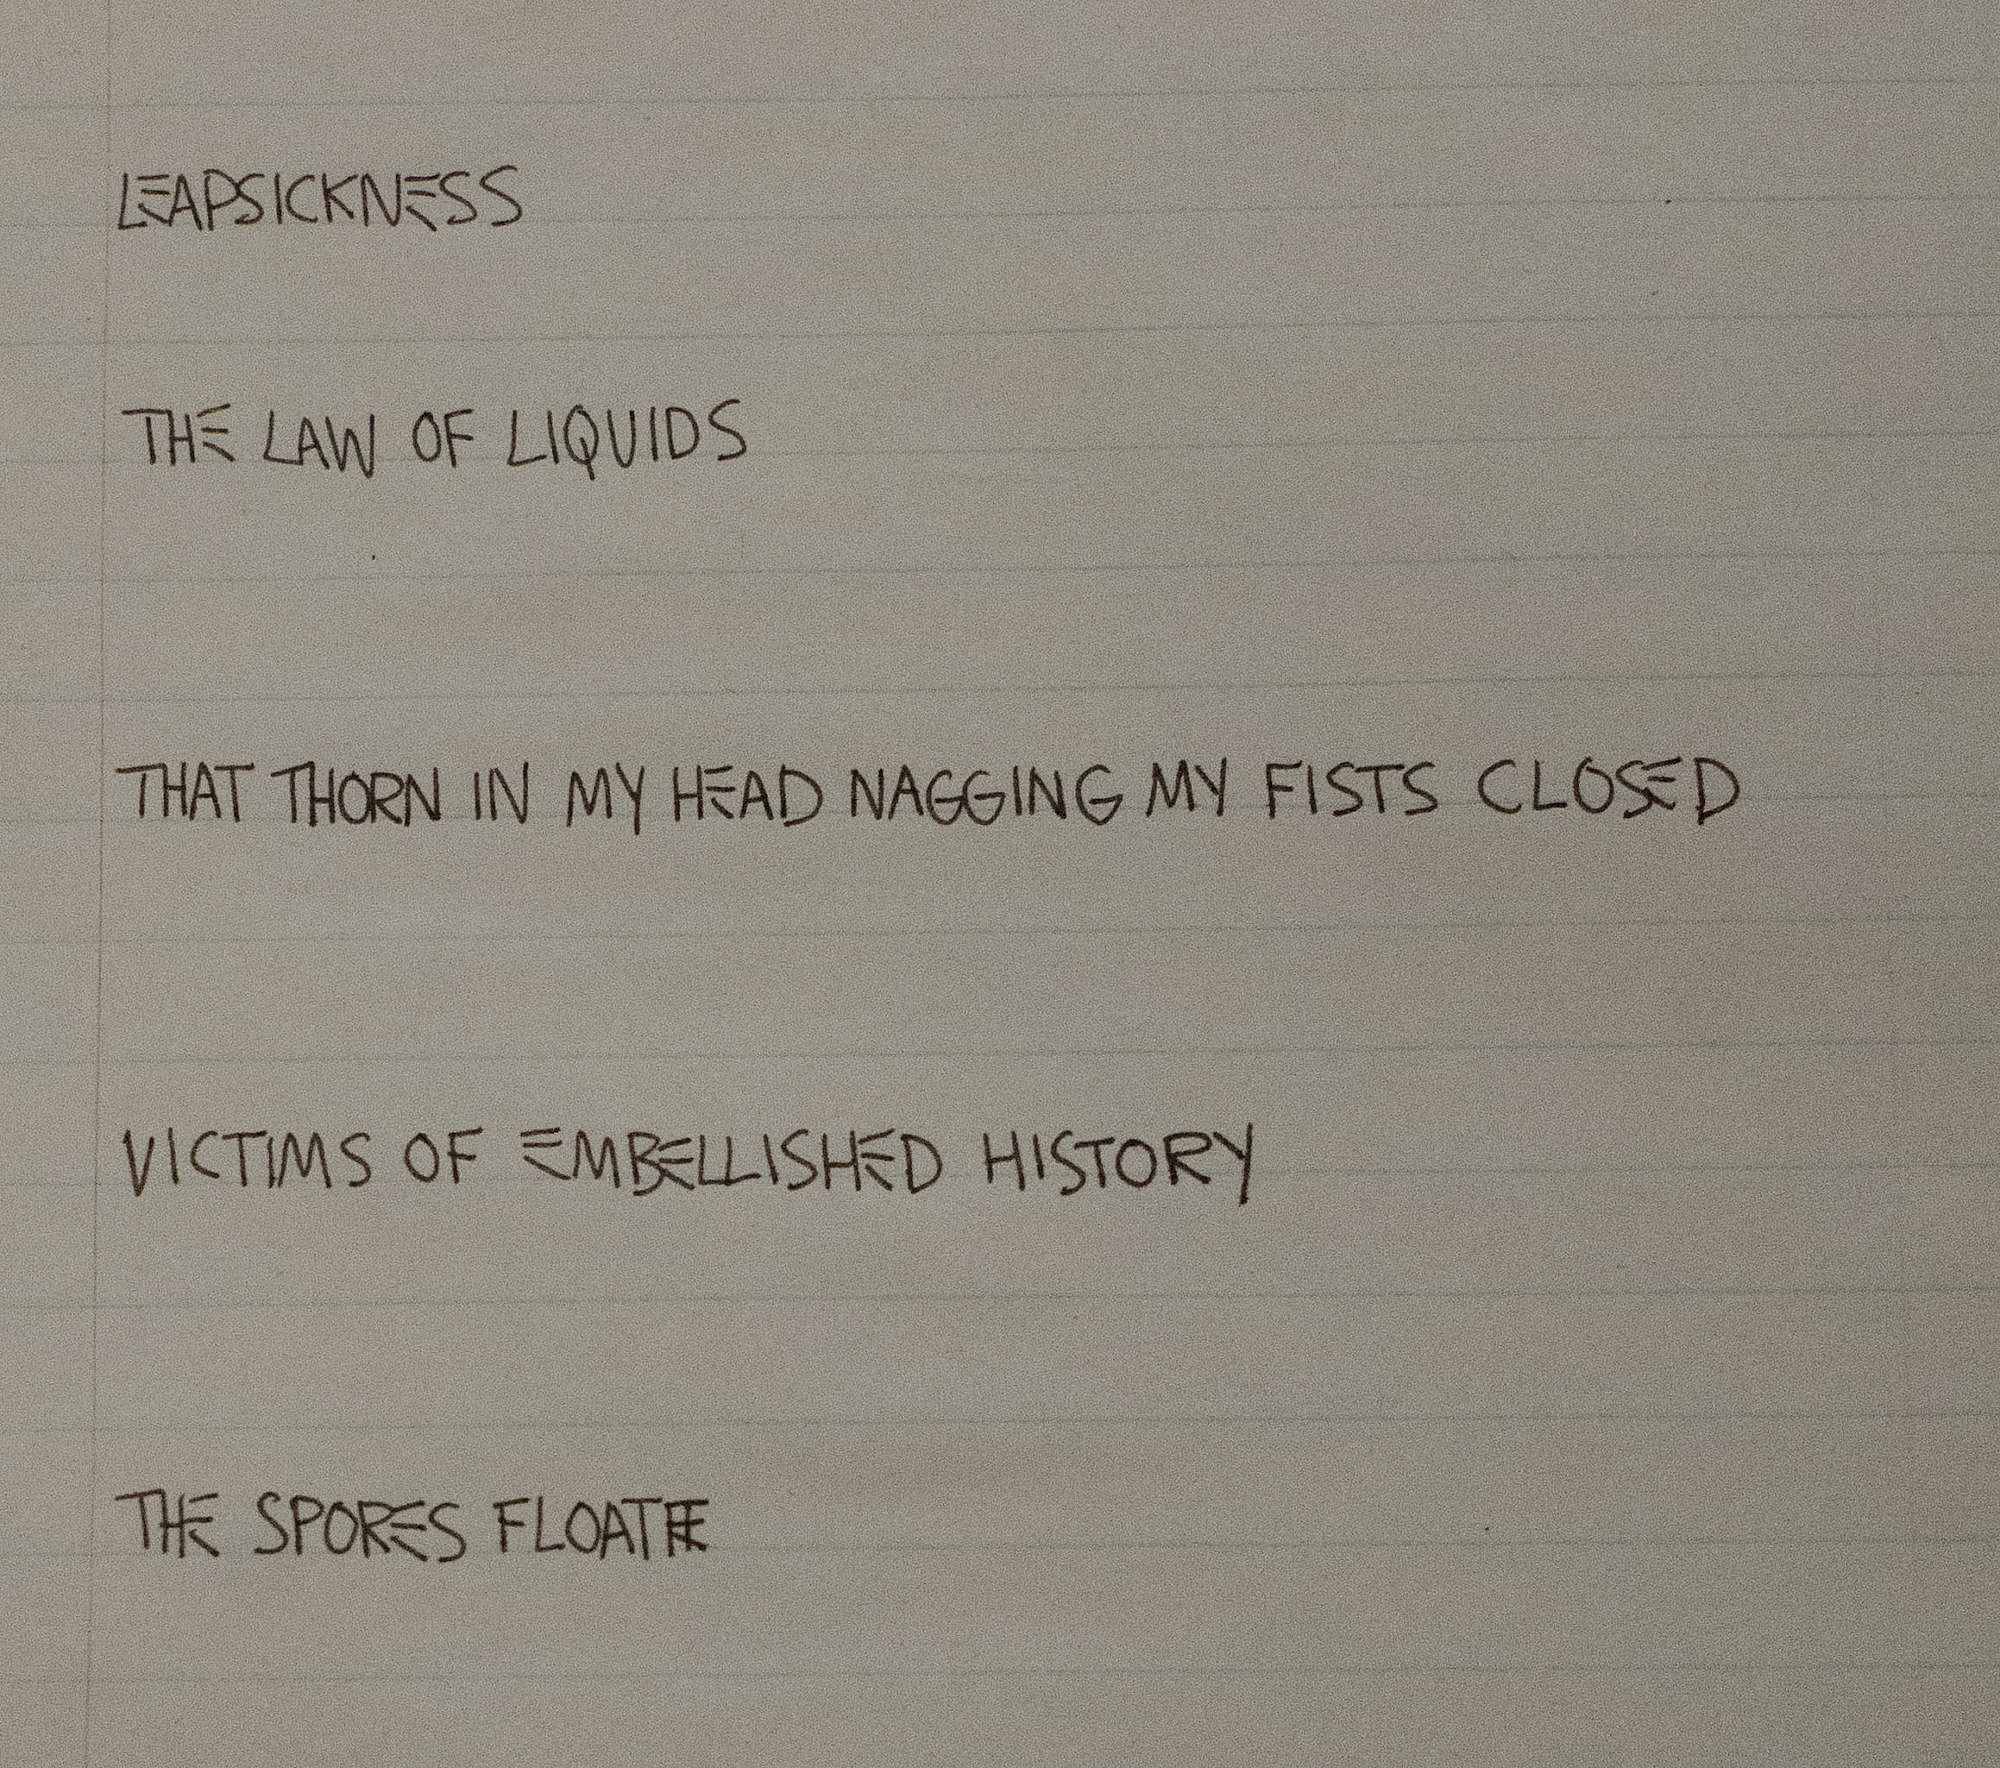 LEAPSICKNESS
THE LAW OF LIQUIDS
THAT THORN IN MY HEAD NAGGING MY FISTS CLOSED
VICTIMS OF EMBELLISHED HISTORY
THE SPORES